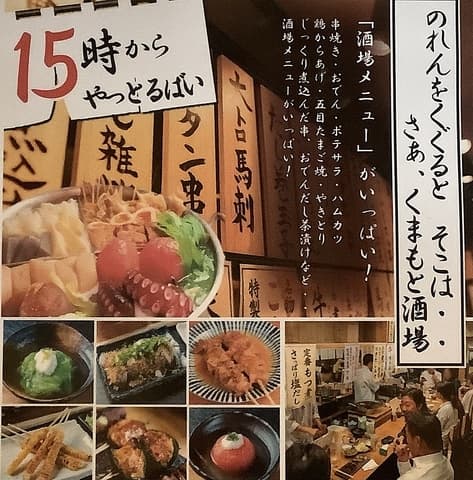 のれんをくぐると そこは・・
さぁ、くまもと酒場
「酒場メニュー」がいっぱい！
串焼き・おでん・ポテサラ・ハムカツ
鶏からあげ・五目たまご焼・やきとり
じっくり煮込んだ串、おでんだし茶漬けなど・・
酒場メニューがいっぱい！
15時から
やっとるばい
大トロ馬刺
タン串
雑炊
特製
定番もつ煮
さっぱり塩だし